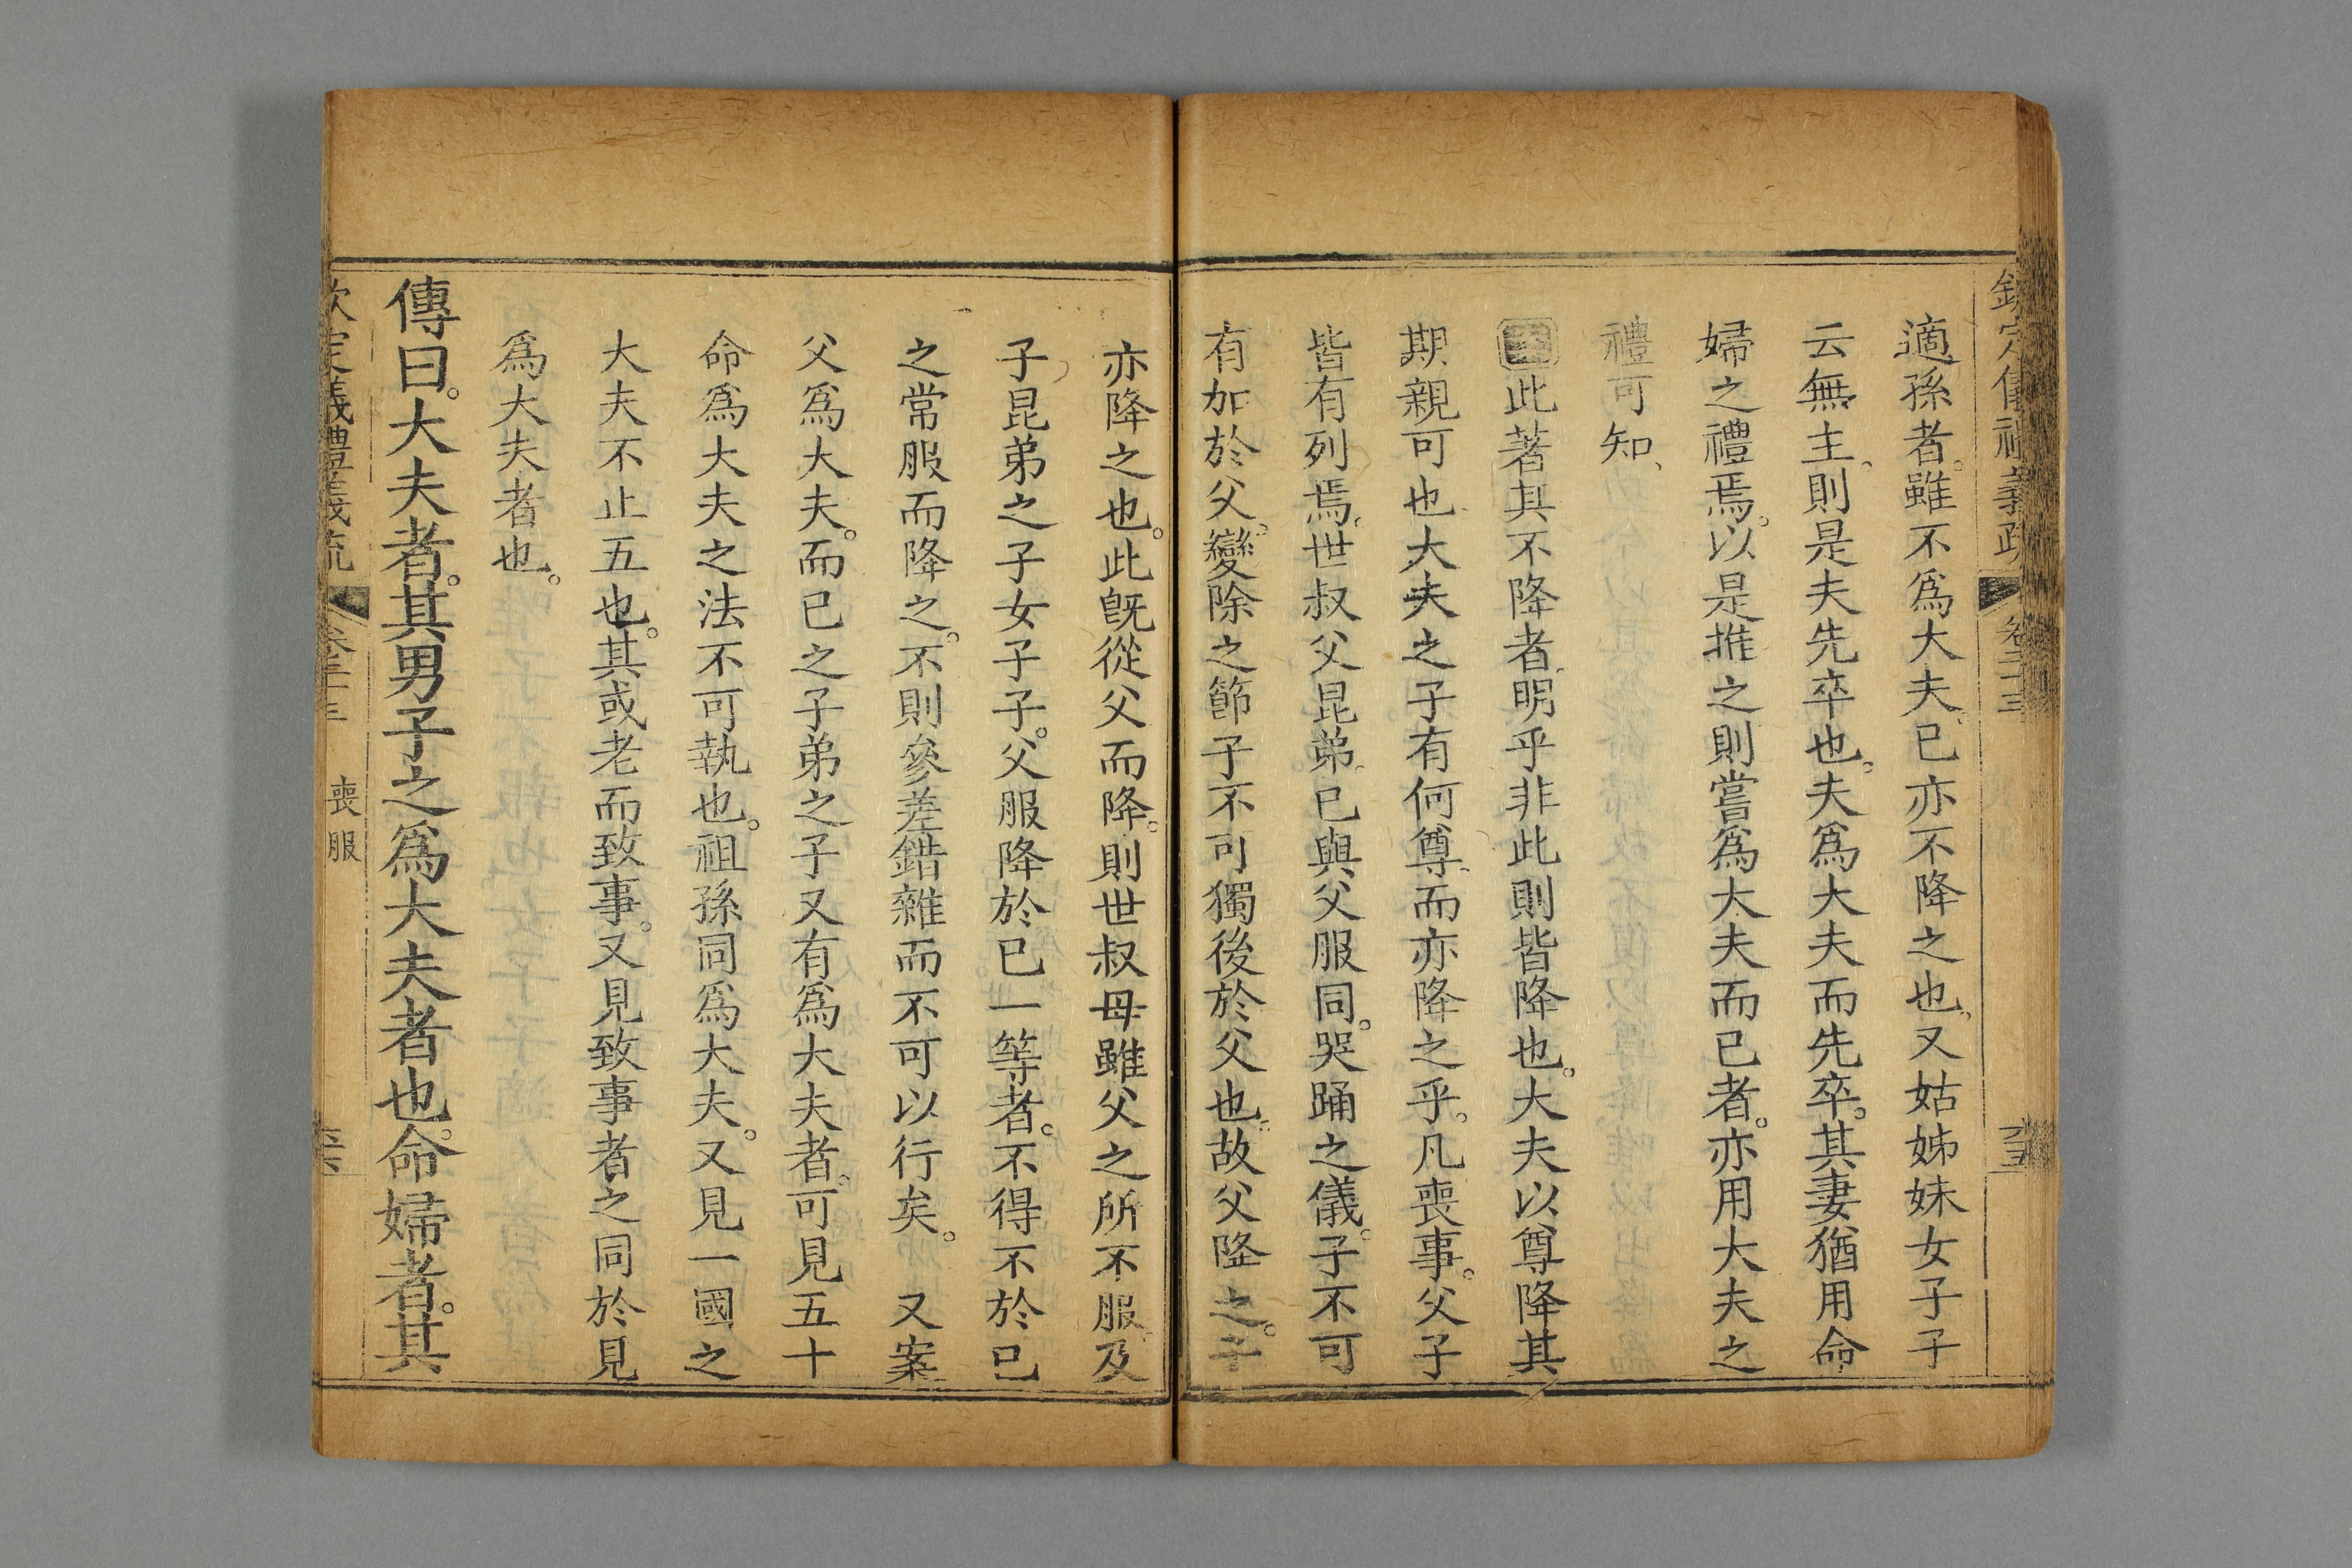 欽定儀禮義疏 卷二十三
適孫者。雖不爲大夫。已亦不降之也、又姑姊妹女子子
云無主、則是夫先卒也。夫爲大夫而先卒。其妻猶用命
婦之禮焉。以是推之則嘗爲大夫而已者。亦用大夫之
禮可知、
此著其不降者明乎非此則皆降也。大夫以尊降其
期親可也大夫之子有何尊而亦降之乎。凡喪事。父子
皆有列焉。世叔父昆弟。已與父服同。哭踊之儀。子不可
有加於父。變除之節子不可獨後於父也。故父降之。子
亦降之也。此旣從父而降。則世叔母雖父之所不服及
子昆弟之子女子子。父服降於已一等者。不得不於已
之常服而降之。不則參差錯雜而不可以行矣。 又案
父爲大夫。而已之子弟之子又有爲大夫者。可見五十
命爲大夫之法不可執也。祖孫同爲大夫。又見一國之
大夫不止五也。其或老而致事。又見致事者之同於見
爲大夫者也。
傳曰。大夫者。其男子之爲大夫者也。命婦者。其
欽定儀禮義疏 卷二十三 喪服